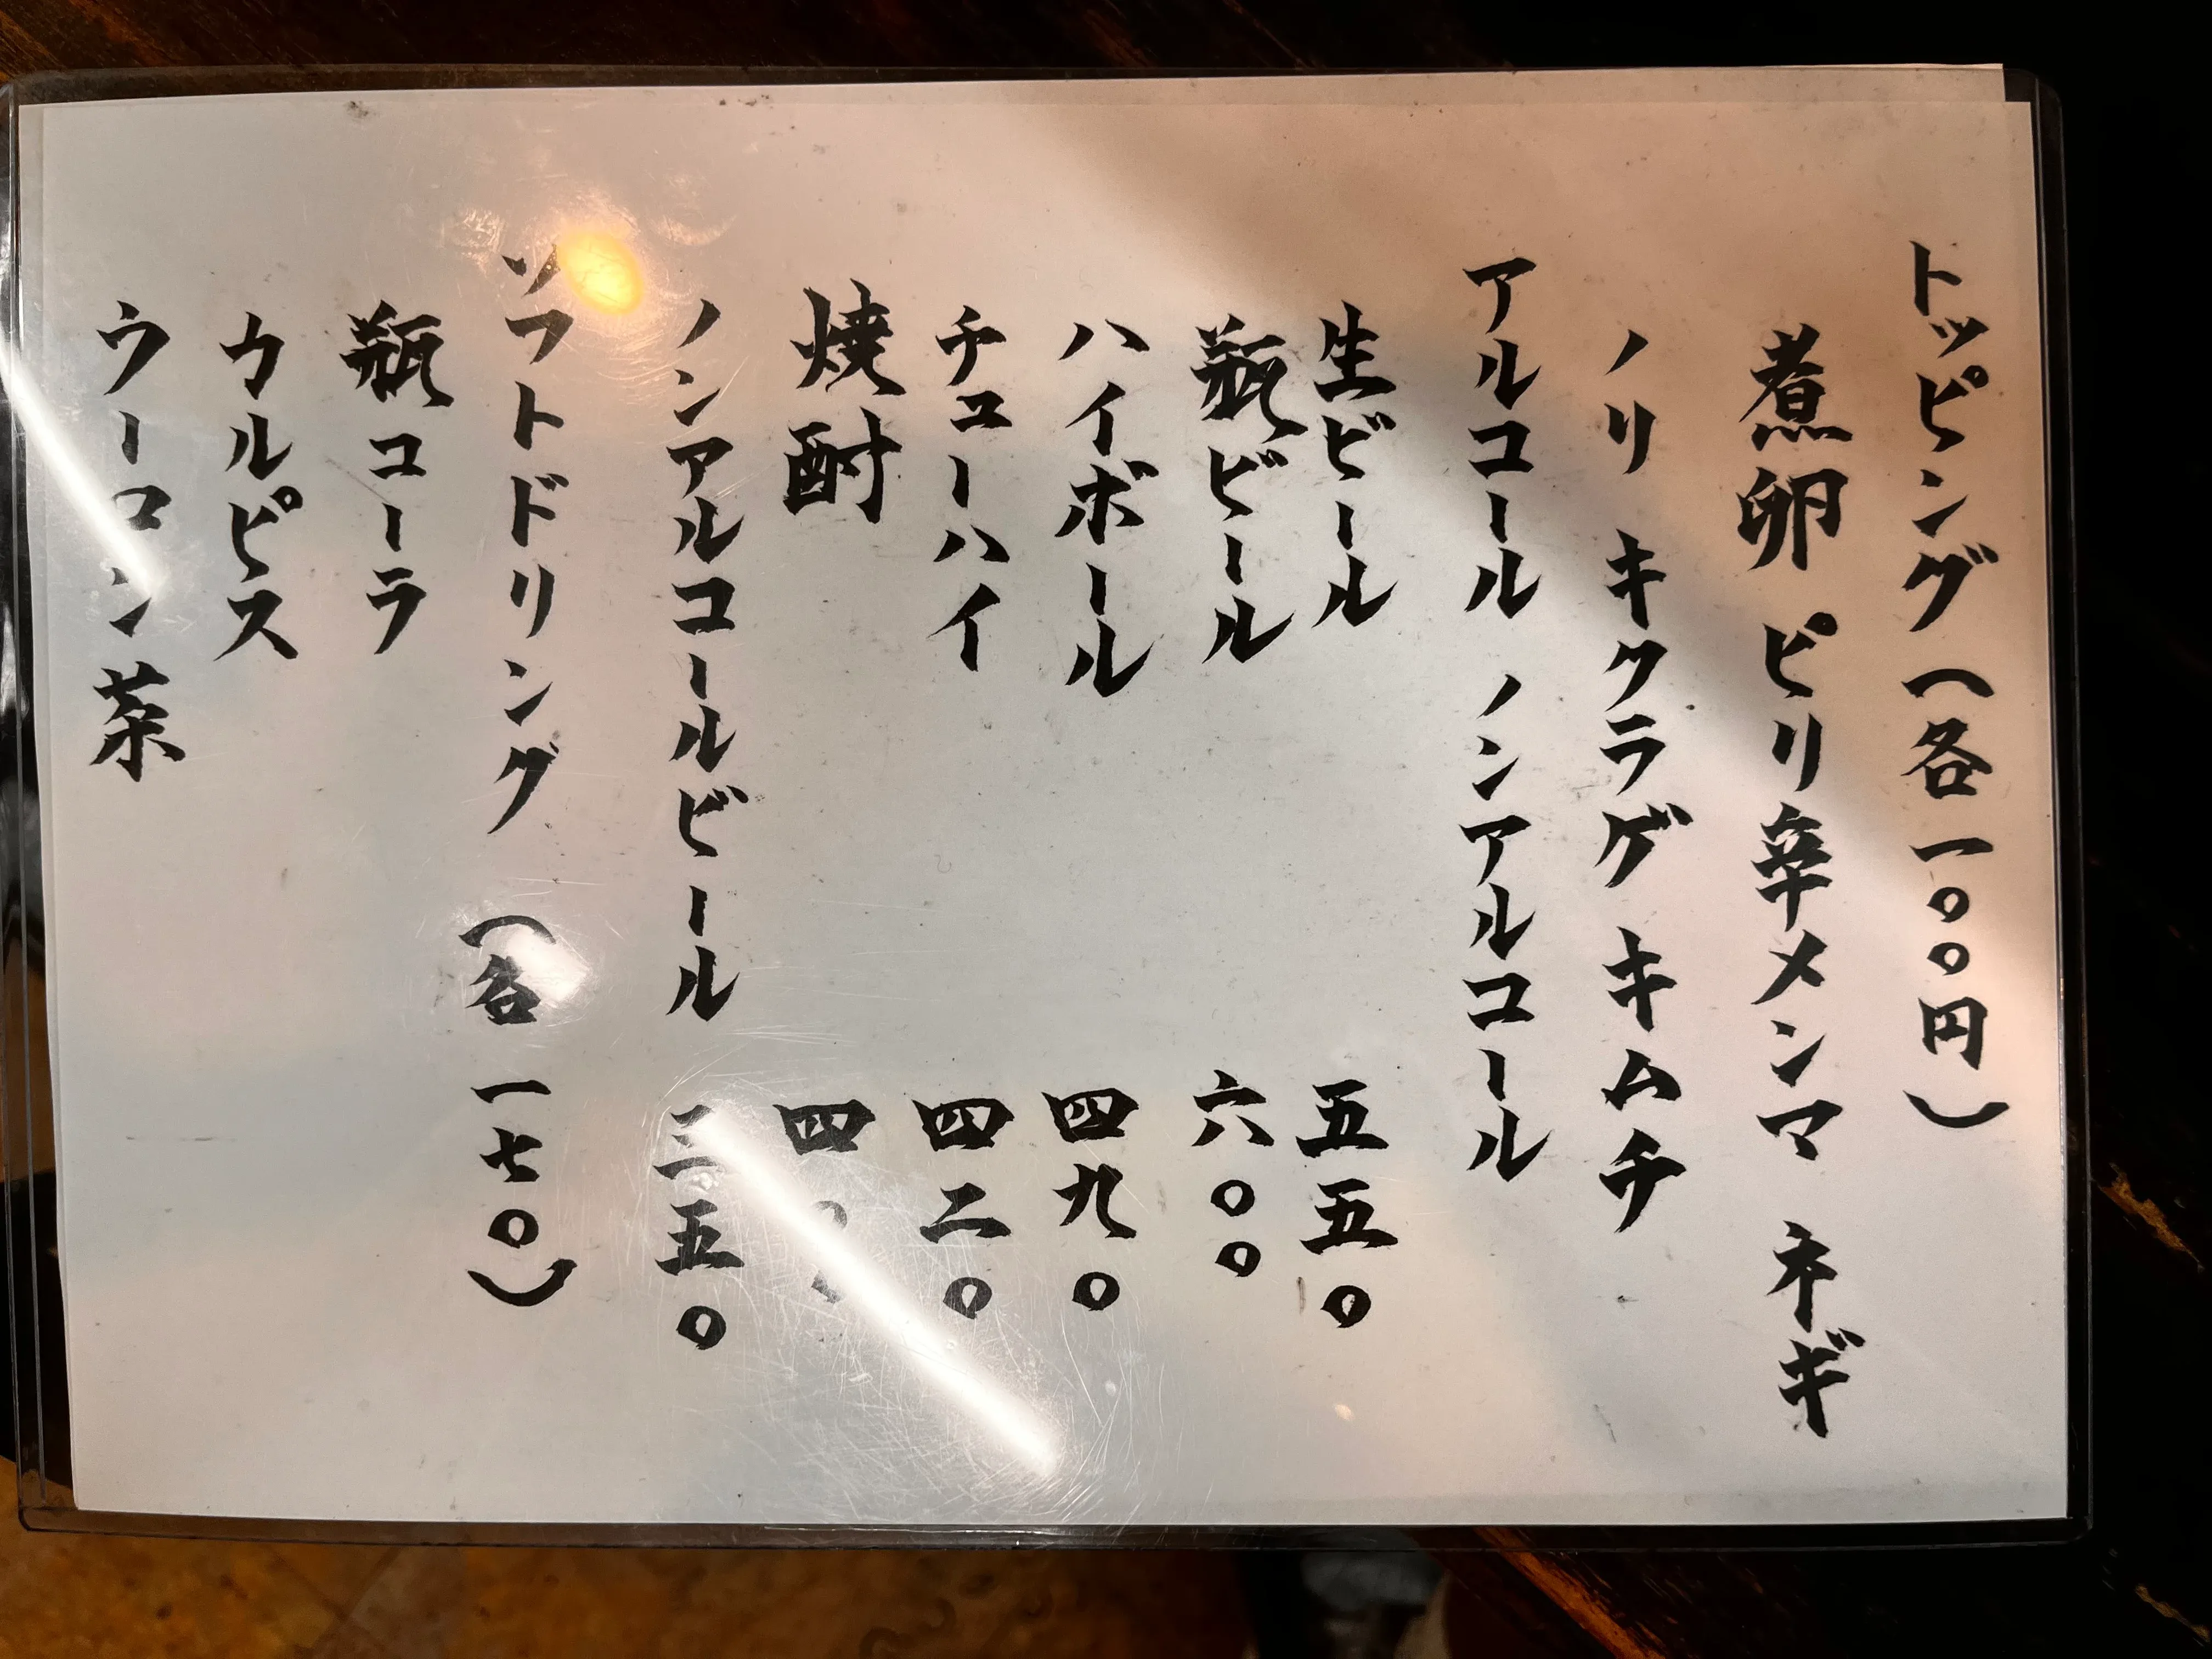 トッピング（各一〇〇円）
煮卵 ピリ辛メンマ ネギ
ノリ キクラゲ キムチ
アルコール ノンアルコール
生ビール 五五〇
瓶ビール 六〇〇
ハイボール 四九〇
チューハイ 四二〇
焼酎
ノンアルコールビール 三五〇
ソフトドリング（各一七〇）
瓶コーラ
カルピス
ウーロン茶